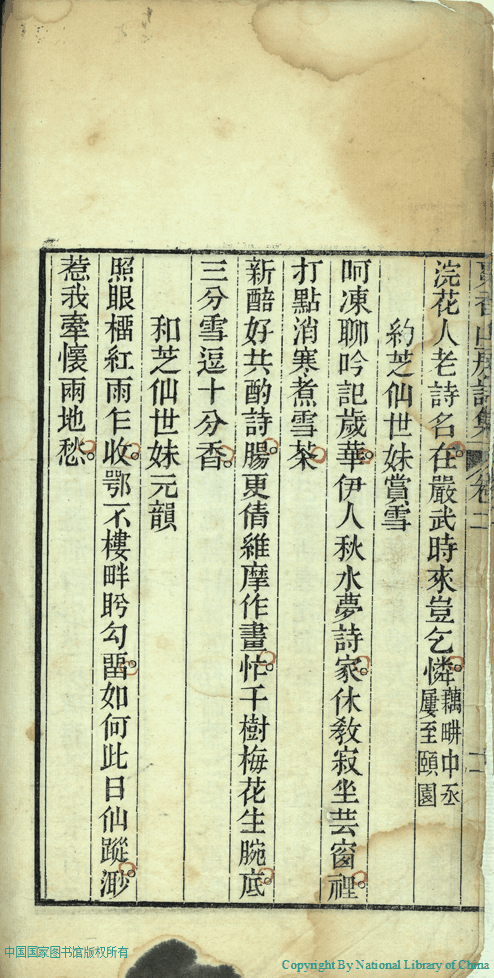 香山房詩集 卷二
浣花人老詩名在嚴武時來豈乞憐藕畊中丞
屢至頤園
約芝仙世妹賞雪
呵凍聊吟記歲華伊人秋水夢詩家休敎寂坐芸窗裡
打點消寒煮雪茶
新醅好共酌詩腸更倩維摩作畫忙千樹梅花生腕底
三分雪逗十分香
和芝仙世妹元韻
照眼橊紅雨乍收鄂不樓畔盻勾畱如何此日仙蹤渺
惹我牽懷兩地愁
中国国家图书馆版权所有
Copyright By National Library of China